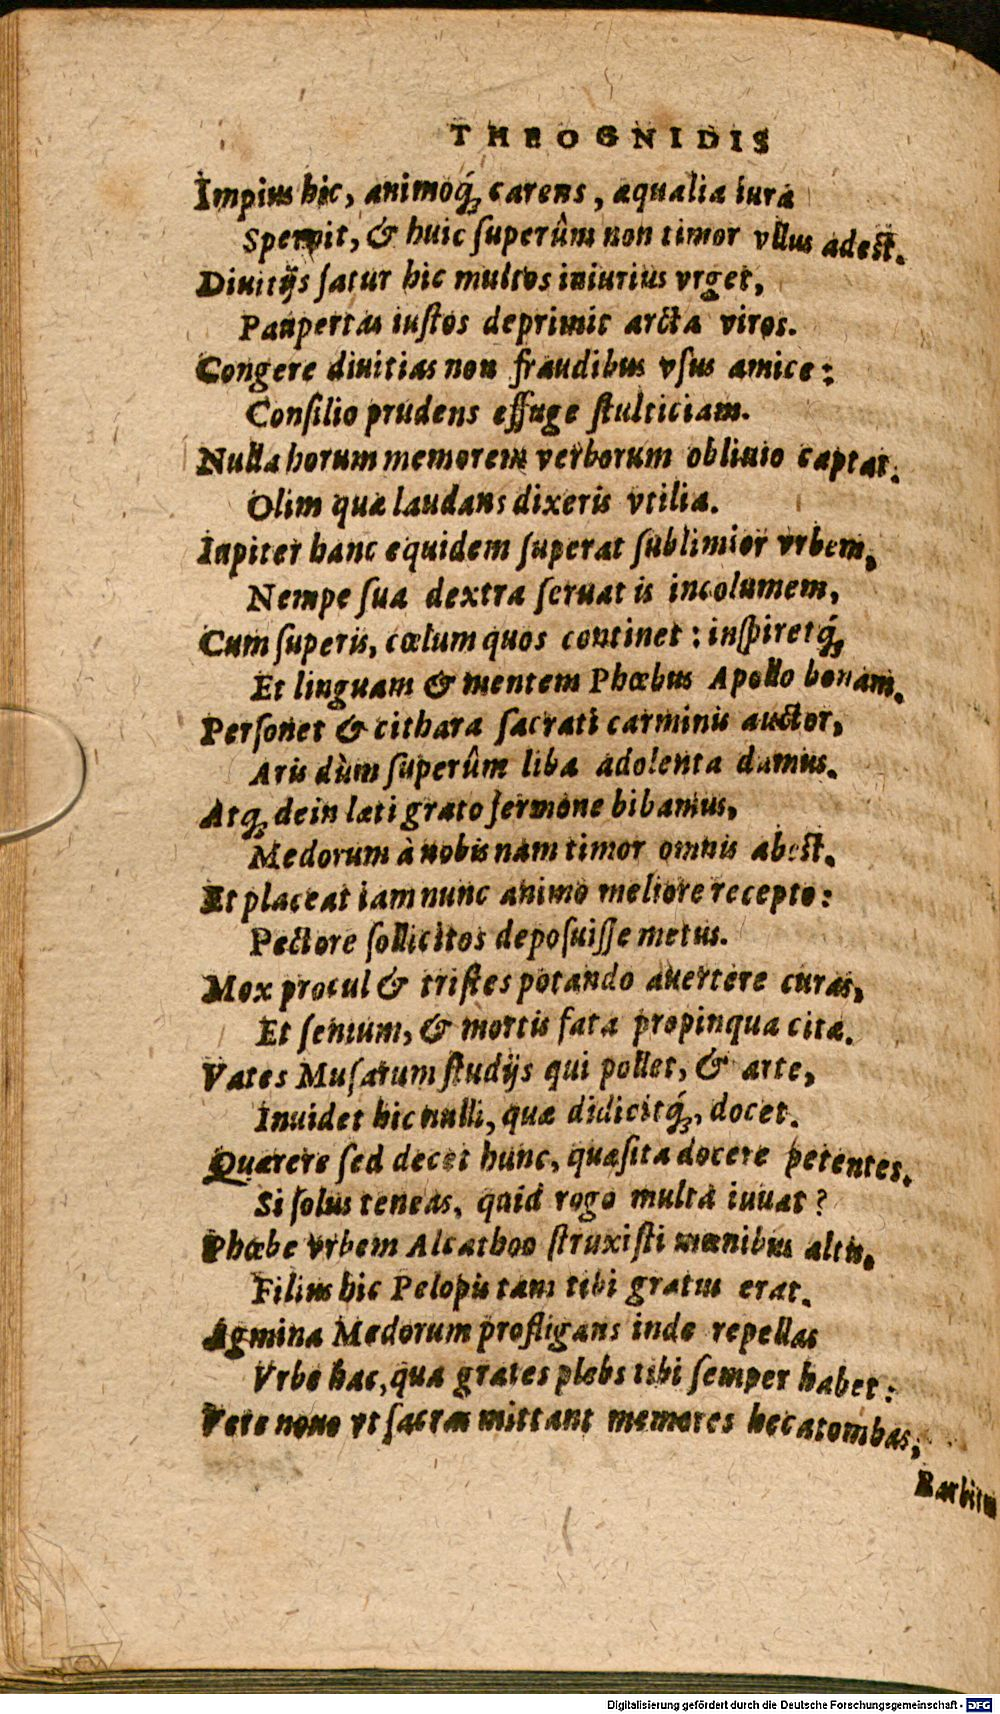 THEOGNIDIS
Impius hic, animoq́ꝫ carens, æqualia iura
Spernit, & huic ſuperûm non timor vllus adeſt.
Diuitijs ſatur hic multos iniurius vrget,
Paupertas iuſtos deprimit arcta viros.
Congere diuitias non fraudibus vſus amice:
Conſilio prudens effuge ſtulticiam.
Nulla horum memorem verborum obliuio captat:
Olim quæ laudans dixeris vtilia.
Iupiter hanc equidem ſuperat ſublimior vrbem,
Nempe ſua dextra ſeruat is incolumem,
Cum ſuperis, cœlum quos continet: inſpiretq́ꝫ
Et linguam & mentem Phœbus Apollo bonam.
Perſonet & cithara ſacrati carminis auctor,
Aris dùm ſuperûm liba adolenta damus.
Atqꝫ dein læti grato ſermone bibamus,
Medorum à nobis nam timor omnis abeſt.
Et placeat iam nunc animo meliore recepto:
Pectore ſollicitos depoſuiſſe metus.
Mox procul & triſtes potando auertere curas,
Et ſenium, & mortis fata propinqua citæ.
Vates Muſarum ſtudijs qui pollet, & arte,
Inuidet hic nulli, quæ didicitq́ꝫ, docet.
Quærere ſed decet hunc, quæſita docere petentes.
Si ſolus teneas, quid rogo multa iuuat?
Phœbe vrbem Alcathoo ſtruxiſti mœnibus altis,
Filius hic Pelopis tam tibi gratus erat.
Agmina Medorum profligans inde repellas
Vrbe hac, qua grates plebs tibi ſemper habet:
Vere nouo vt ſacras mittant memores hecatombas,
Barbitus
Digitalisierung gefördert durch die Deutsche Forschungsgemeinschaft - DFG